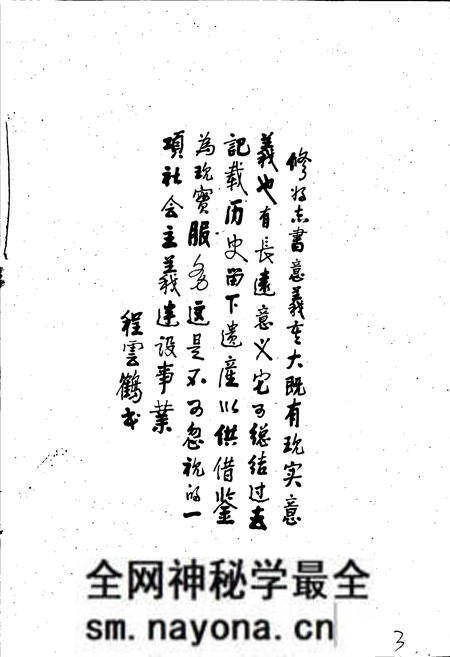 修好志书意義重大既有现实意
義也有長遠意义它可总结过去
記载历史留下遗産以供借鉴
為现實服务这是不可忽视的一
項社会主義建设事業
程雲鶴书
全网神秘学最全
sm.nayona.cn
3